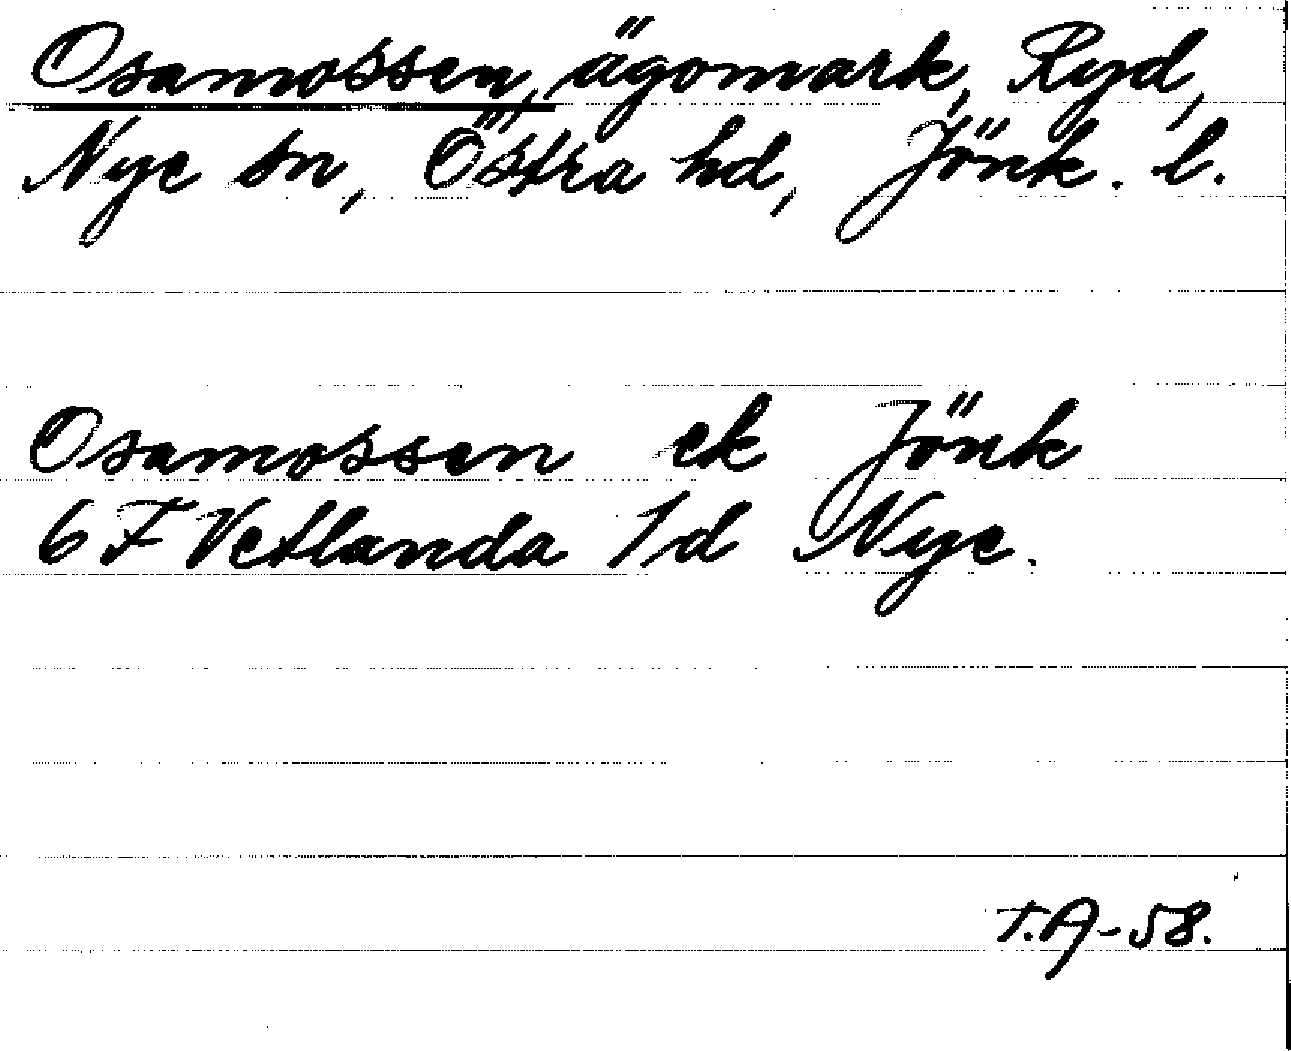 Osamossen, ägomark, Ryd,
Nye sn, Östra hd, Jönk. l.
Osamossen ek Jönk
6 F Vetlanda 1d Nye.
T.A-58.